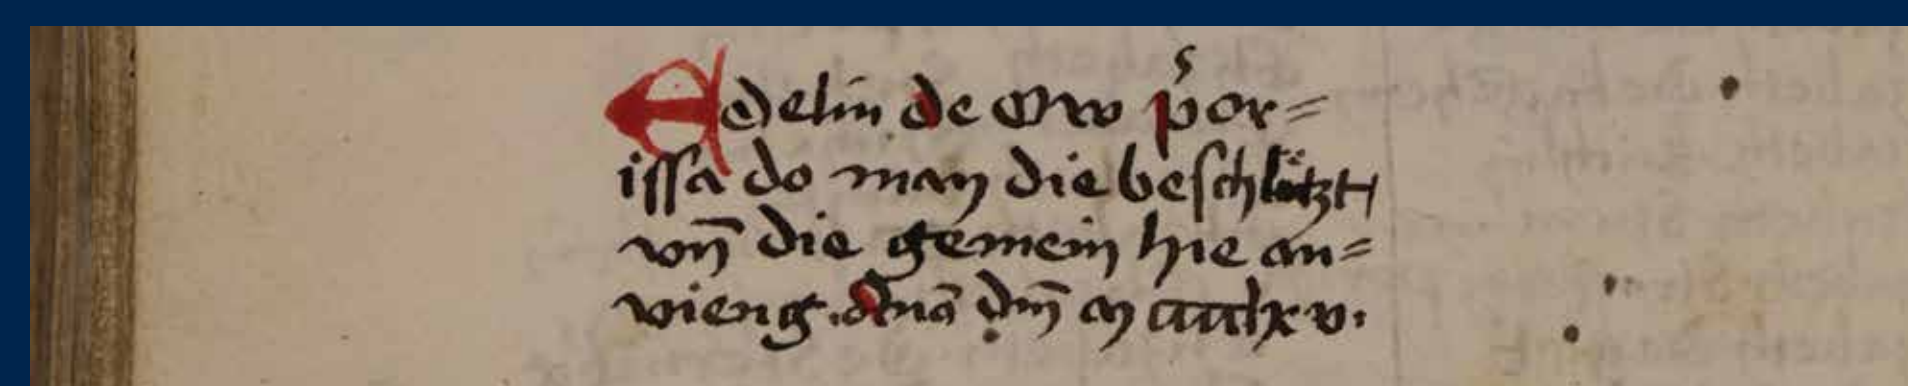 Edelin de Ow pͥor=
issa do man die beschlützt
vn̄ die gemein hie an=
vieng. Anō dm̄ M cccc lxv.